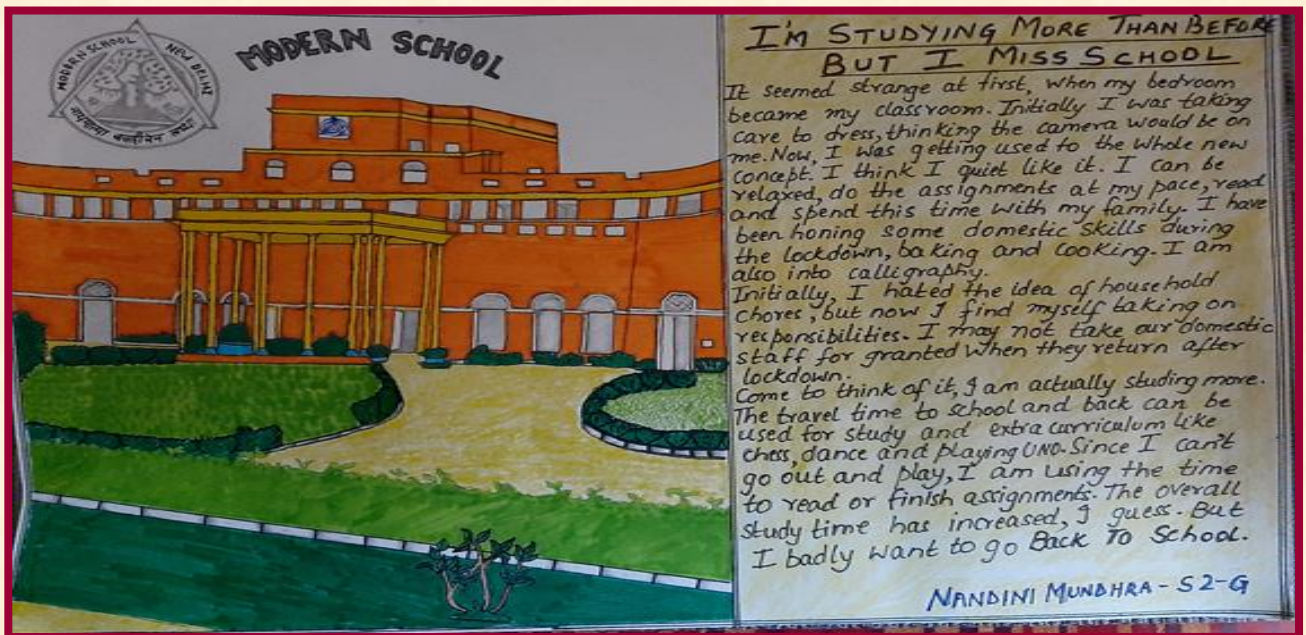 MODERN SCHOOL NEW DELHI
MODERN SCHOOL
I'M STUDYING MORE THAN BEFORE
BUT I MISS SCHOOL
It seemed strange at first, when my bedroom
became my classroom. Initially I was taking
care to dress, thinking the camera would be on
me. Now, I was getting used to the whole new
concept. I think I quiet like it. I can be
relaxed, do the assignments at my pace, read
and spend this time with my family. I have
been honing some domestic skills during
the lockdown, baking and cooking. I am
also into calligraphy.
Initially, I hated the idea of household
chores, but now I find myself taking on
responsibilities. I may not take our domestic
staff for granted when they return after
lockdown.
Come to think of it, I am actually studing more.
The travel time to school and back can be
used for study and extra curriculum like
chess, dance and playing UNO. Since I can't
go out and play, I am using the time
to read or finish assignments. The overall
study time has increased, I guess. But
I badly want to go Back To School.
NANDINI MUNDHRA - S2-G